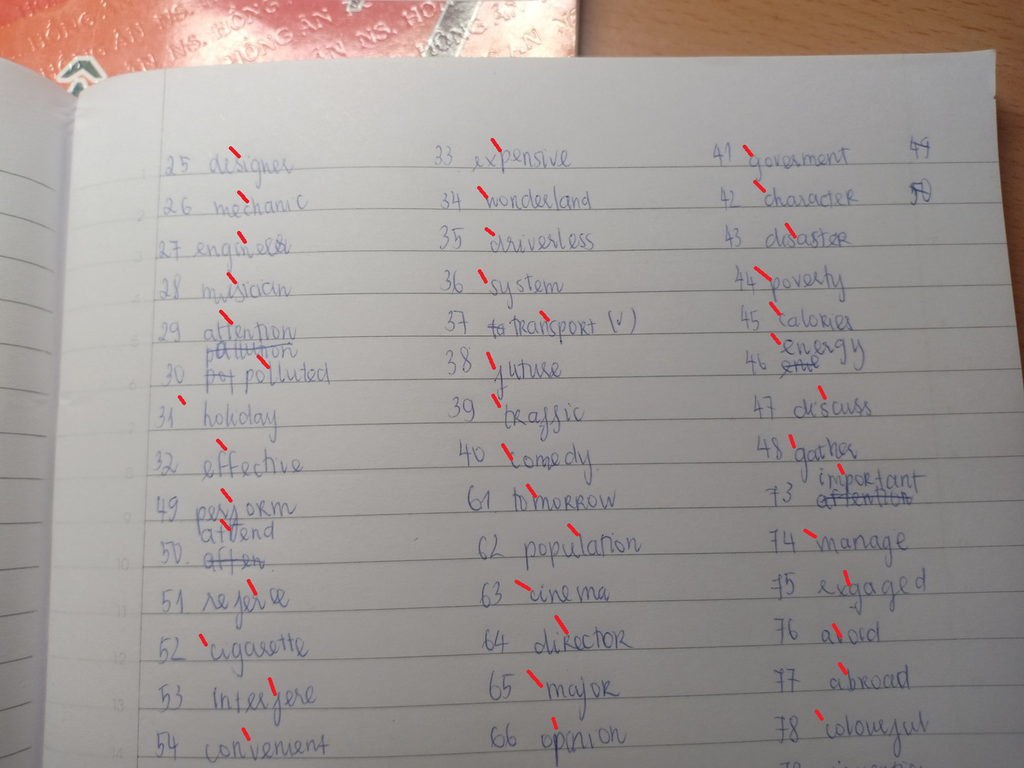 HỒNG ÂN NS. HỒNG ÂN NS. HỒNG ÂN
25 designer
26 mechanic
27 engineer
28 musician
29 attention
pollution
30 pot polluted
31 holiday
32 effective
49 perform
attend
50. atten
51 referee
52 cigarette
53 interfere
54 convenient
33 expensive
34 wonderland
35 driverless
36 system
37 to transport (v)
38 future
39 traffic
40 comedy
61 tomorrow
62 population
63 cinema
64 director
65 major
66 opinion
41 goverment
42 character
43 disaster
44 poverty
45 calories
energy
46 ene
47 discuss
48 gather
important
73 attention
74 manage
75 exgaged
76 avoid
77 abroad
78 colourful
49
50